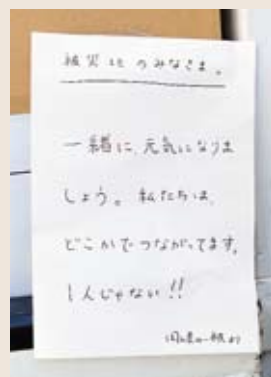 被災地のみなさま。
一緒に、元気になりま
しょう。私たちは、
どこかでつながってます。
1人じゃない!!